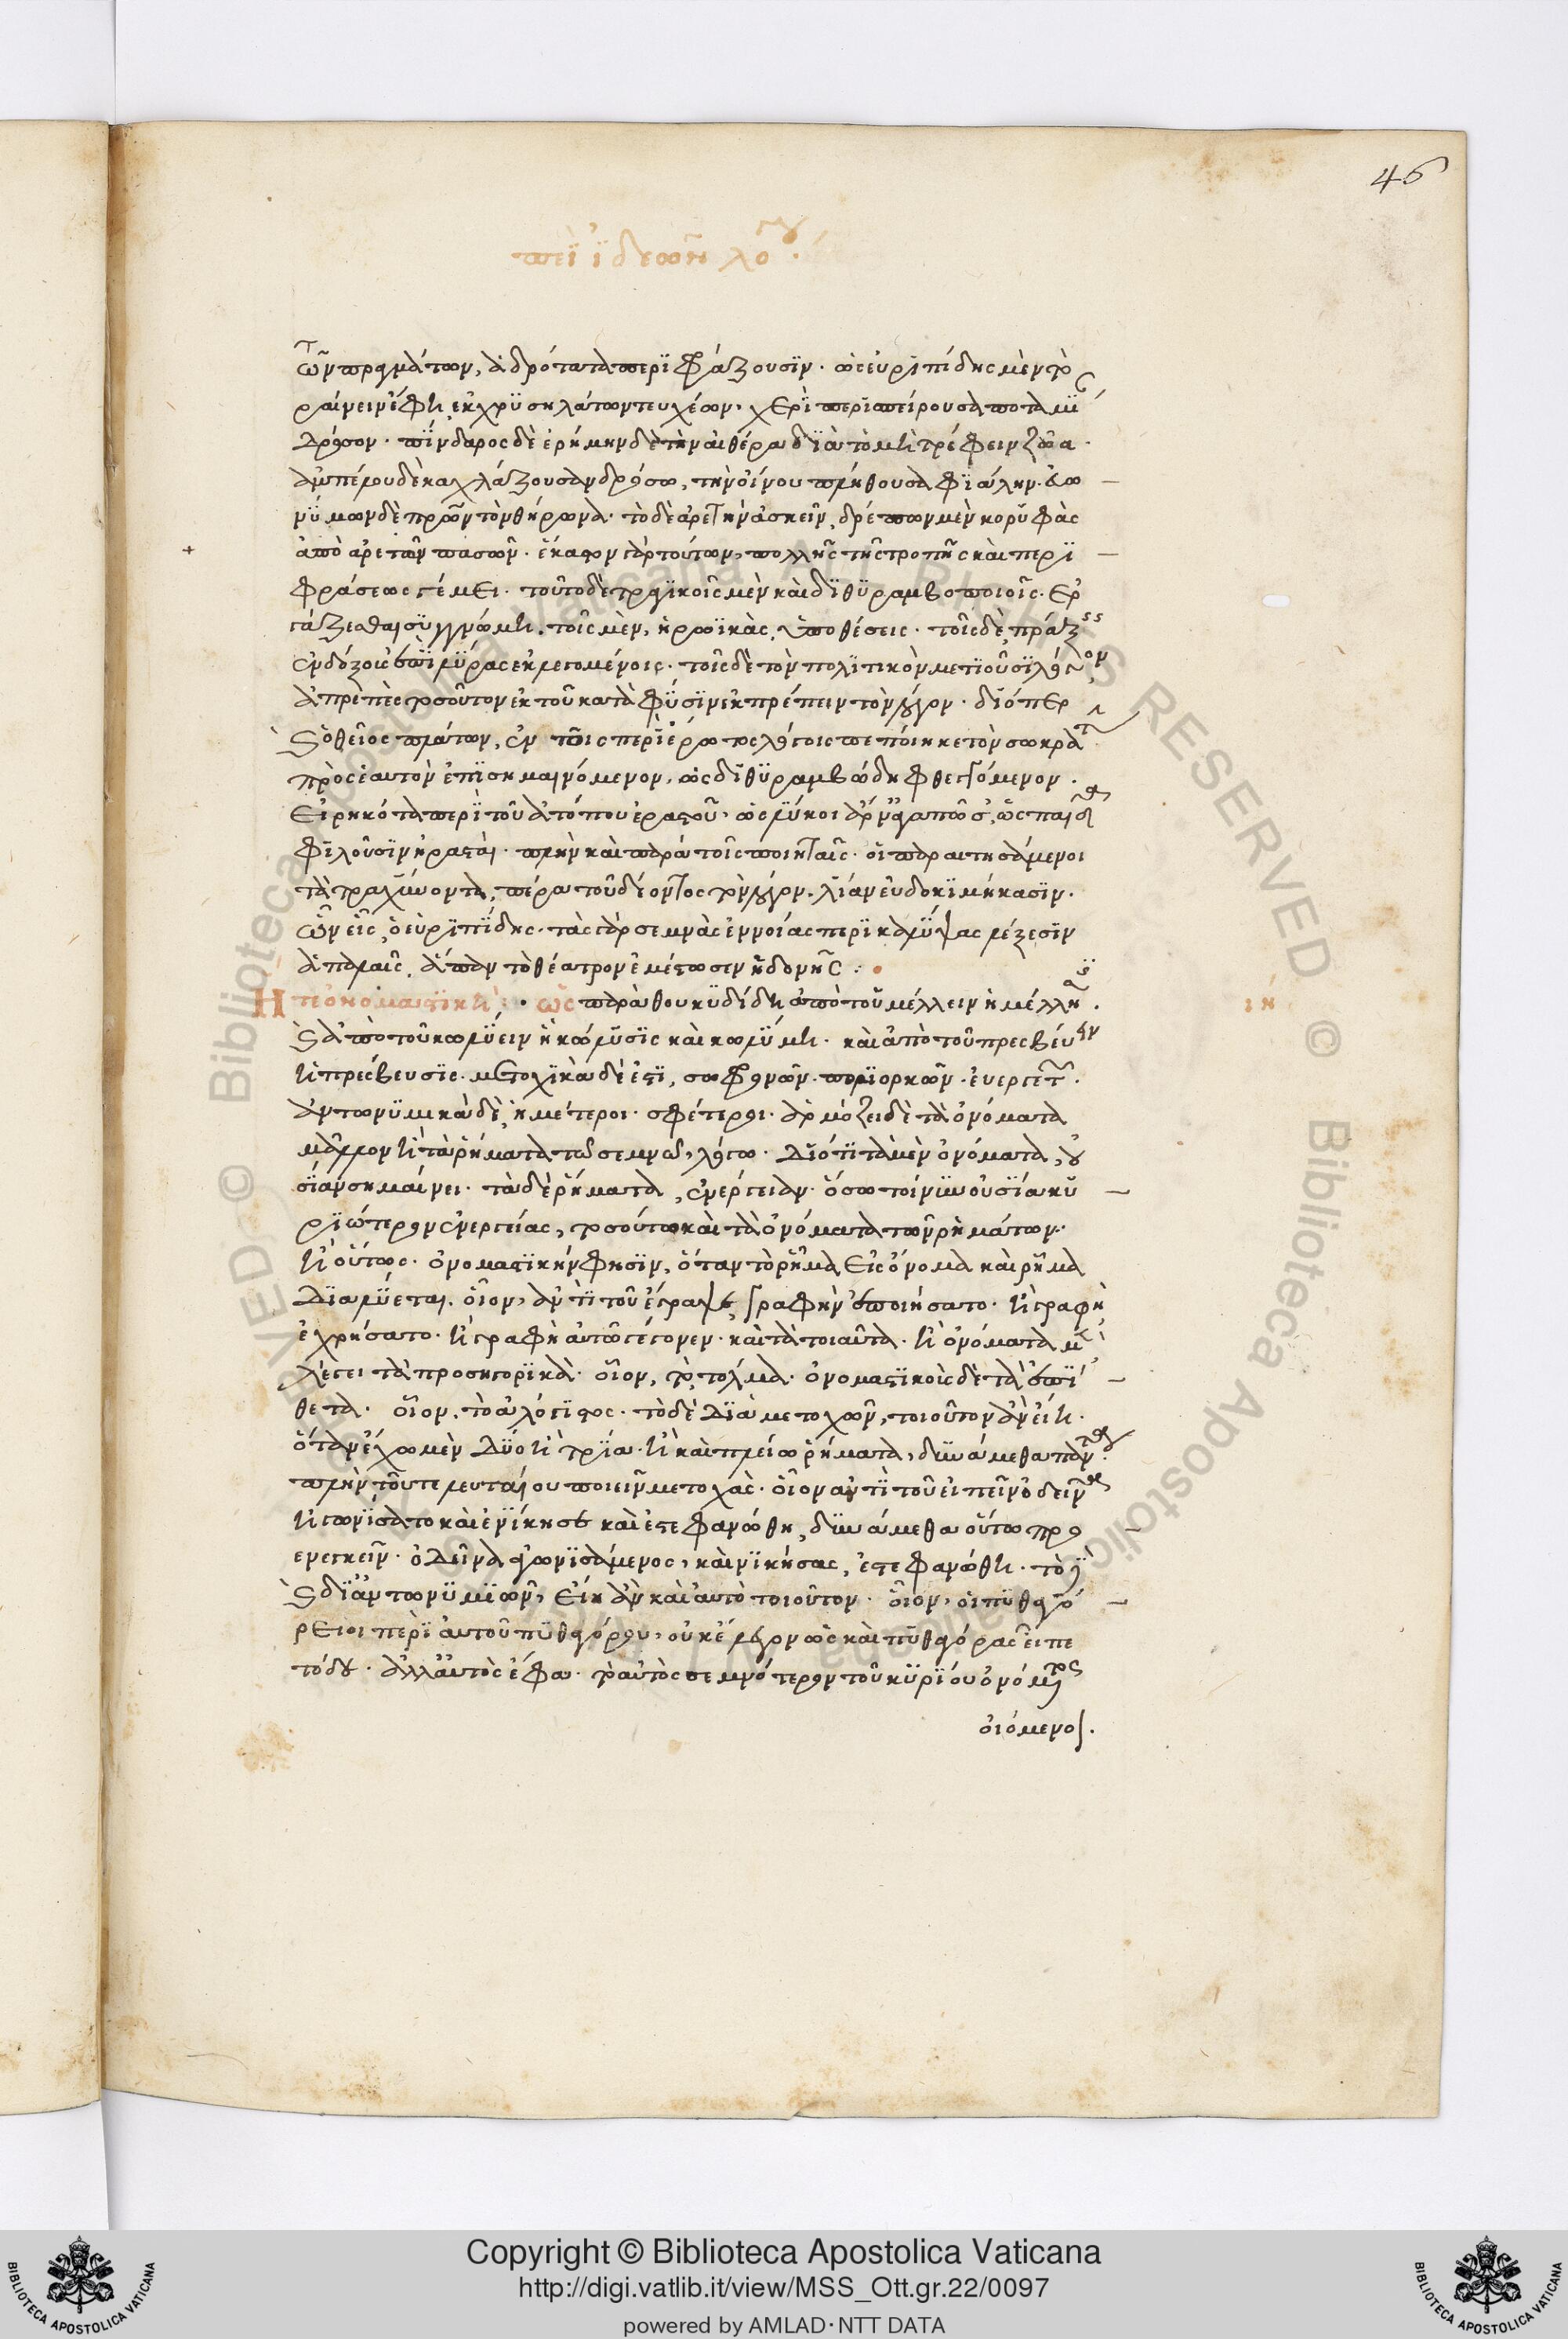 46
περὶ ἰδεῶν λόγου
τῶν πραγμάτων, ἁδρότατα περιφράζουσιν· ὡς εὐριπίδης μὲν τὸ
ραίνειν ἔφη, ἐκ χρυσηλάτων τευχέων, χερὶ
δρόσον· πίνδαρος δὲ ἐρήμην δὲ τὴν αἰθέρα διὰ τὸ μὴ τρέφειν ζῶα·
ἀμπέλου δὲ καχλάζουσαν δρόσω, τὴν οἴνου πλήθουσαν φιάλην·
νύμων δὲ πρῶτον τὸν θήρωνα· τὸ δὲ ἀρετὴν ἀσκεῖν, δρέπων μὲν κορυφὰς
ἀπὸ ἀρετῶν πασῶν· ἕκαστον γὰρ τούτων, πολλῆς τῆς τροπῆς καὶ περι
φράσεως γέμει· τοῦτο δὲ τραγικοῖς μὲν καὶ διθυραμβοποιοῖς· ἐρ
γάζεσθαι συγγνώμη· τοῖς μὲν, ἡρωϊκὰς ὑποθέσεις· τοῖς δὲ, πράξεις
ἐνδόξους ἐπὶ λύρας ἐκμεγομένοις· τοῖς δὲ τὸν πολιτικὸν μετιοῦσι λόγον
ἀπρεπὲς τοσοῦτον ἐκ τοῦ κατὰ φύσιν ἐκπρέπειν τὸν λόγον· διόπερ
καὶ ὁ θεῖος πλάτων, ἐν τοῖς περὶ ἔρωτος λόγοις πεποίηκε τὸν σωκράτην
πρὸς ἑαυτὸν ἐπισημαινόμενον, ὡς διθυραμβώδη φθεγξόμενον·
εἰρηκότα περὶ τοῦ ἀτόπου ἐραστοῦ, ὡς λύκοι ἄρν' ἀγαπῶσ', ὣς παῖδα
φιλοῦσιν ἐρασταί· πλὴν καὶ παρὰ τοῖς ποιηταῖς· οἱ παραιτησάμενοι
τὰ τραχύνοντα, πέρα τοῦ δέοντος τὸν λόγον, λίαν εὐδοκιμήκασιν·
ὧν εἷς, ὁ εὐριπίδης· τὰς γὰρ σεμνὰς ἐννοίας περικαλύψας λέξεσιν
ἁπαλαῖς, ἅπαν τὸ θέατρον ἐμέστωσεν ἡδονῆς:
Ἥ τε ὀνομαστικὴ: ὡς παρὰ θουκυδίδη ἀπὸ τοῦ μέλλειν ἡ μέλλησις·
ιη
καὶ ἀπὸ τοῦ κωλύειν ἡ κώλυσις καὶ κωλύμη· καὶ ἀπὸ τοῦ πρεσβεύειν
ἡ πρέσβευσις· μετοχικὰ δέ ἐστι, σωφρονῶν· ἐπιορκῶν· εὐεργετῶν·
ἀντωνυμικὰ δὲ, ἡμέτεροι· σφέτεροι· ἁρμόζει δὲ τὰ ὀνόματα
μᾶλλον ἢ τὰ ῥήματα τῶ σεμνῶ λόγω· διότι τὰ μὲν ὀνόματα, οὐ
σίαν σημαίνει· τὰ δὲ ῥήματα, ἐνέργειαν· ὅσω τοίνυν οὐσία κυ
ριώτερον ἐνεργείας, τοσούτω καὶ τὰ ὀνόματα τῶν ῥημάτων·
ἢ οὕτως· ὀνομαστικήν φησιν, ὅταν τὸ ῥῆμα εἰς ὄνομα καὶ ῥῆμα
διαλύεται· οἷον, ἀντὶ τοῦ ἔγραψε, γραφὴν ἐποιήσατο· ἢ γραφῇ
ἐχρήσατο· ἢ γραφὴ αὐτῶ γέγονεν· καὶ τὰ τοιαῦτα· ἢ ὀνόματα μὲν
λέγει τὰ προσηγορικὰ· οἷον, τὸ τόλμα· ὀνομαστικοῖς δὲ τὰ ἐπί
θετα· οἷον, τὸ τὸ δὲ διὰ μετοχῶν, τοιοῦτον ἂν εἴη·
ὅταν ἔχωμεν δύο ἢ τρία· ἢ καὶ πλείω ῥήματα, δυνάμεθα πάντα
πλὴν τοῦ τελευταίου ποιεῖν μετοχάς· οἷον ἀντὶ τοῦ εἰπεῖν ὁ δεῖνα
ἠγωνίσατο καὶ ἐνίκησε καὶ ἐστεφανώθη, δυνάμεθα οὕτω προ
ενεγκεῖν· ὁ δεῖνα ἀγωνισάμενος, καὶ νικήσας, ἐστεφανώθη· τὸ δὲ
καὶ δι' ἀντωνυμιῶν, εἴη ἂν καὶ αὐτὸ τοιοῦτον· οἷον, οἱ πυθαγό
ρειοι περὶ αὐτοῦ πυθαγόρου, οὐκ ἔλεγον ὡς καὶ πυθαγόρας εἶπε
τόδε· ἀλλ' αὐτὸς ἔφα· τὸ αὐτὸς σεμνότερον τοῦ κυρίου ὀνόματος
οἰόμενοι.
Copyright © Biblioteca Apostolica Vaticana
http://digi.vatlib.it/view/MSS_Ott.gr.22/0097
powered by AMLAD·NTT DATA